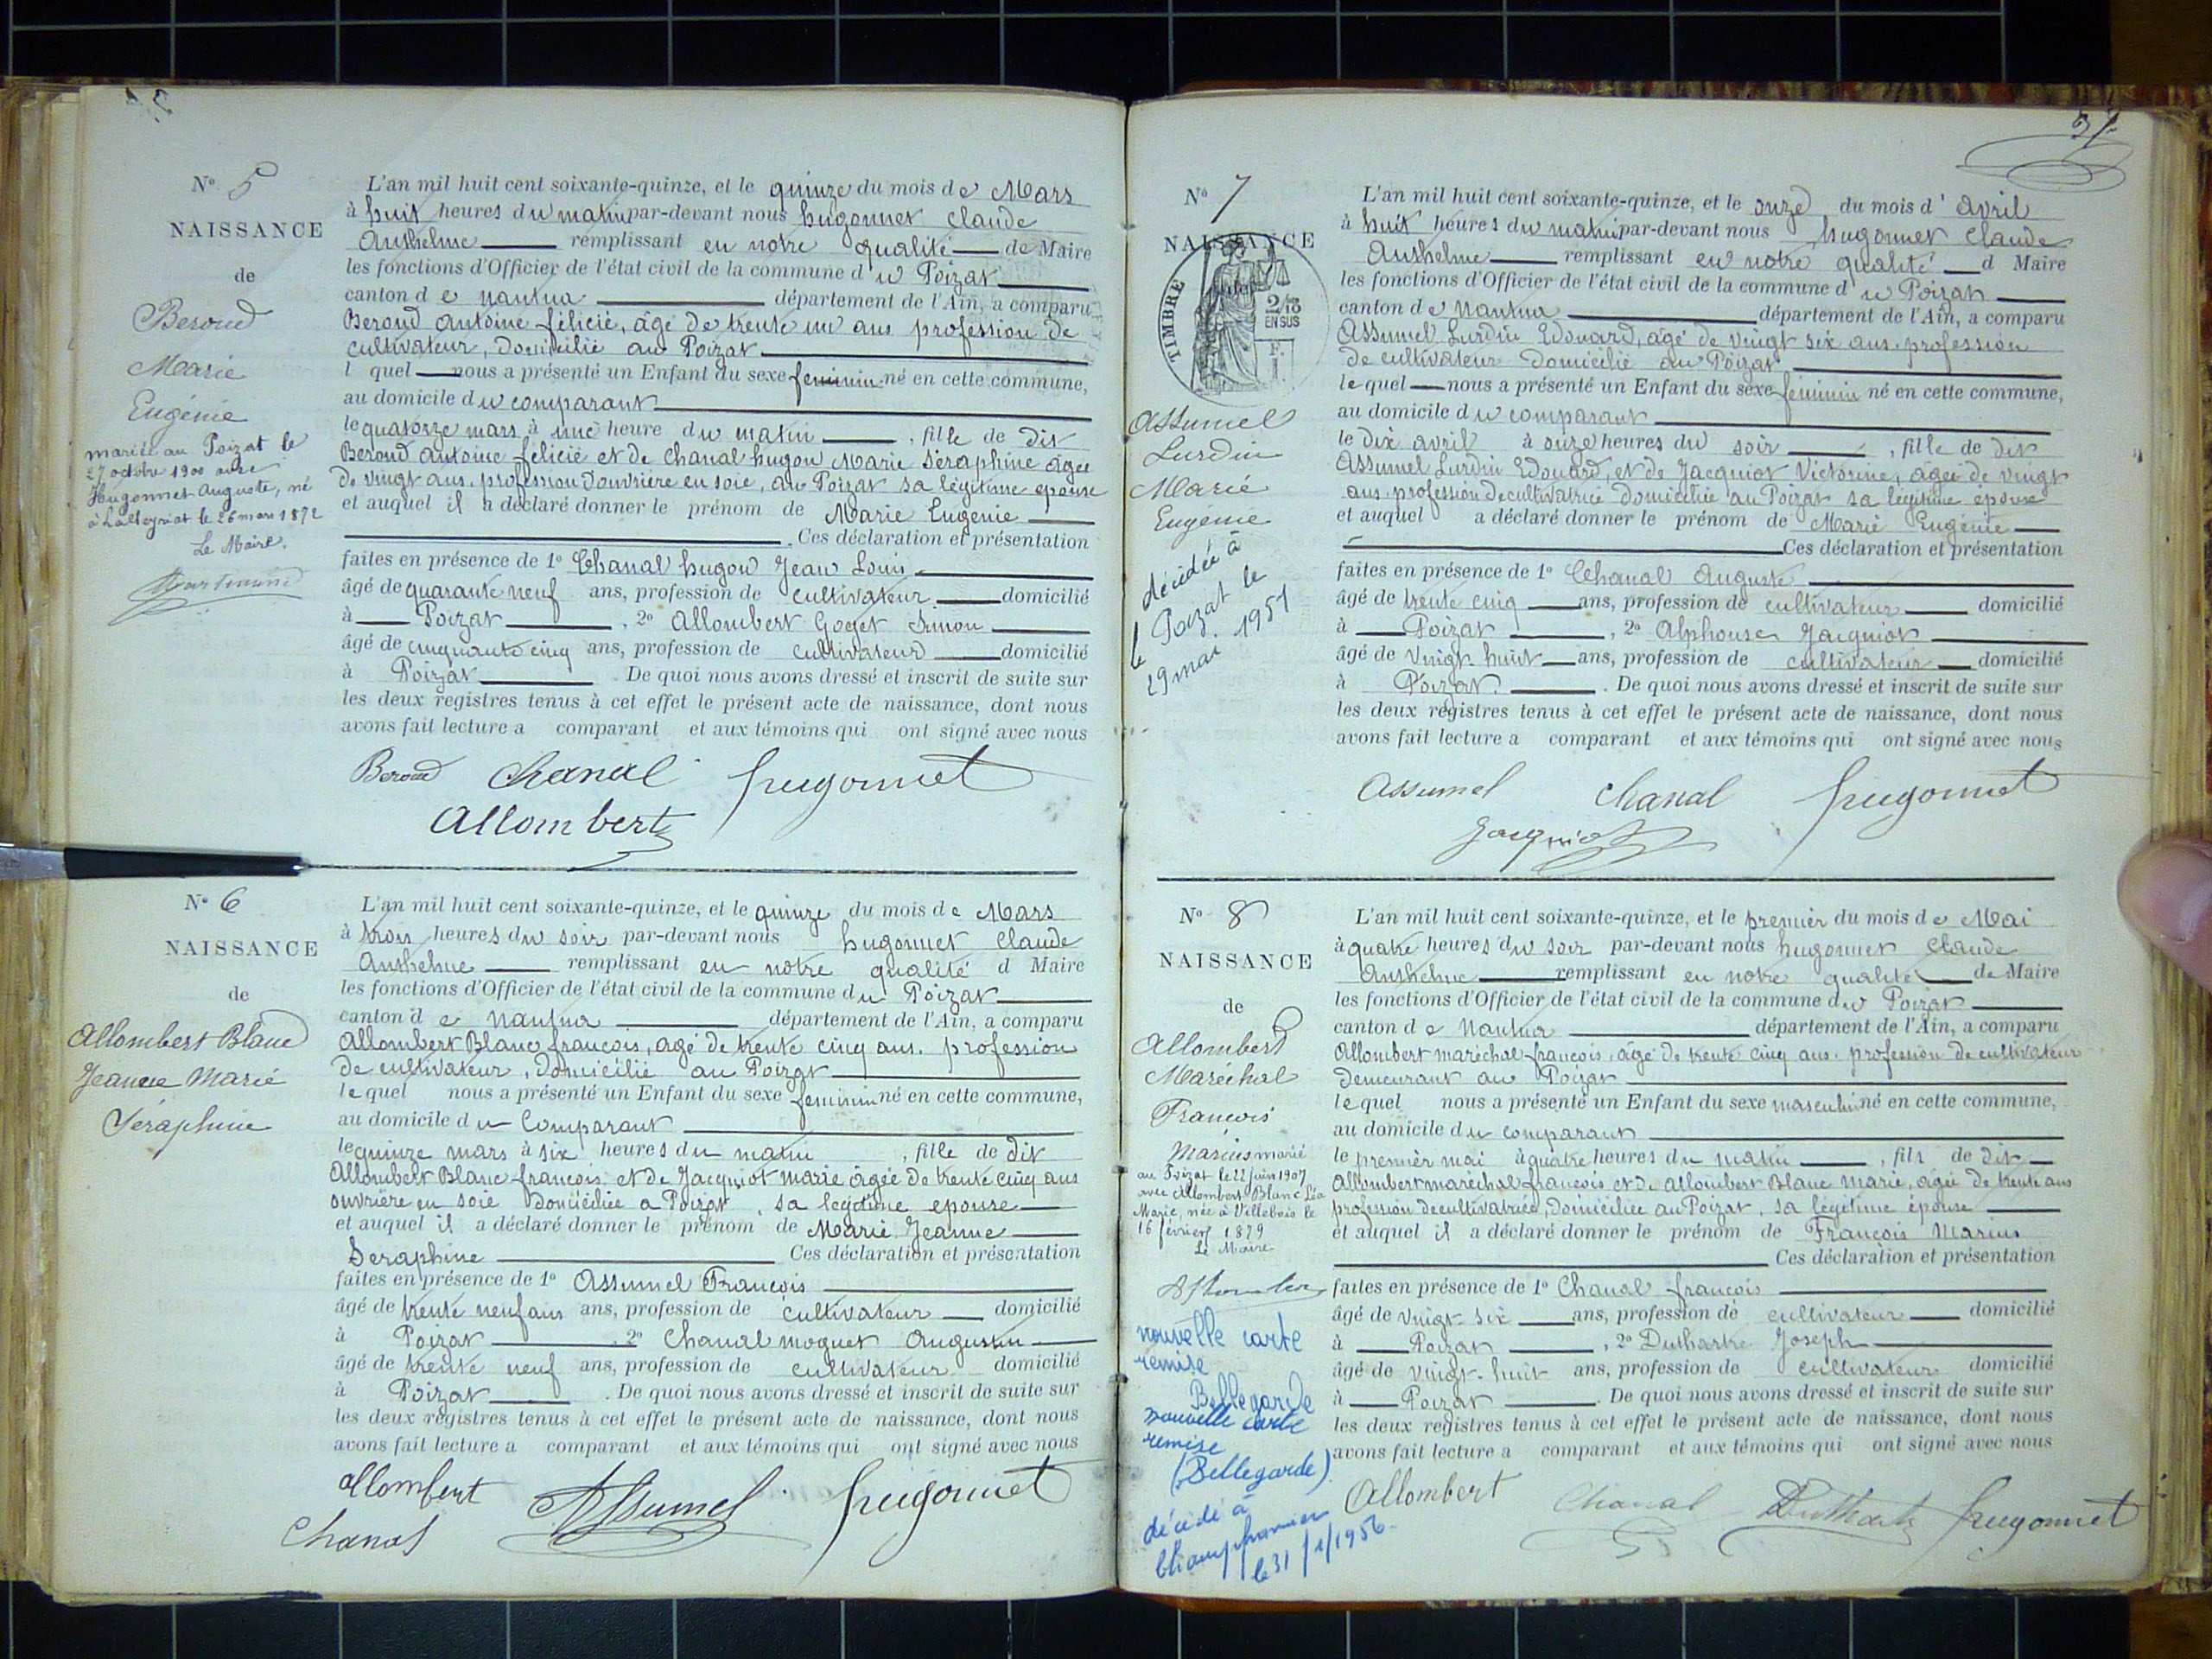 N° 5
NAISSANCE
de
Beroud
Marie
Eugénie
mariée au Poizat le
27 octobre 1900 avec
Hugonnet Auguste, né
à Lalleyriat le 26 mars 1872
Le Maire.
L'an mil huit cent soixante-quinze, et le quinze du mois de Mars
à huit heures du matin par-devant nous hugonnet Claude
Anthelme remplissant en notre qualité de Maire
les fonctions d'Officier de l'état civil de la commune du Poizat
canton de nantua département de l'Ain, a comparu
Beroud Antoine félicié, âgé de trente un ans profession de
cultivateur, Domicilié au Poizat
l quel nous a présenté un Enfant du sexe feminin né en cette commune,
au domicile du comparant
le quatorze mars à une heure du matin, fille de dit
Beroud Antoine félicié et de Chanal hugon Marie Séraphine âgée
de vingt ans, profession D'ouvrière en soie, au Poizat sa légitime epouse
et auquel il a déclaré donner le prénom de Marie Eugenie
. Ces déclaration et présentation
faites en présence de 1° Chanal hugon Jean Louis
âgé de quarante neuf ans, profession de cultivateur domicilié
à Poizat, 2° Allombert Goget Simon
âgé de cinquante cinq ans, profession de cultivateur domicilié
à Poizat. De quoi nous avons dressé et inscrit de suite sur
les deux registres tenus à cet effet le présent acte de naissance, dont nous
avons fait lecture a comparant et aux témoins qui ont signé avec nous
Beroud Chanal hugonnet
Allombert
N° 6
NAISSANCE
de
Allombert Blanc
Jeanne Marie
Séraphine
L'an mil huit cent soixante-quinze, et le quinze du mois de Mars
à trois heures du soir par-devant nous hugonnet Claude
Anthelme remplissant en notre qualité d Maire
les fonctions d'Officier de l'état civil de la commune du Poizat
canton de Nantua département de l'Ain, a comparu
Allombert Blanc françois, âgé de trente cinq ans. profession
de cultivateur, Domicilié au Poizat
le quel nous a présenté un Enfant du sexe feminin né en cette commune,
au domicile du Comparant
le quinze mars à six heures du matin, fille de dit
Allombert Blanc françois et de Jacquiot marie âgée de trente cinq ans
ouvrière en soie Domiciliée a Poizat, sa legitime epouse
et auquel il a déclaré donner le prénom de Marie Jeanne
Seraphine Ces déclaration et présentation
faites en présence de 1° Assumel François
âgé de trente neuf ans ans, profession de cultivateur domicilié
à Poizat. 2° Chanal moguet Augustin
âgé de trente neuf ans, profession de cultivateur domicilié
à Poizat. De quoi nous avons dressé et inscrit de suite sur
les deux registres tenus à cet effet le présent acte de naissance, dont nous
avons fait lecture a comparant et aux témoins qui ont signé avec nous
Allombert Assumel hugonnet
Chanal
N° 7
NAISSANCE
TIMBRE
2/10
EN SUS
Assumel
Lurdin
Marie
Eugénie
décédée à
le Poizat le
29 mai 1951
L'an mil huit cent soixante-quinze, et le onze du mois d'avril
à huit heures du matin par-devant nous hugonnet Claude
Anthelme remplissant en notre qualité d Maire
les fonctions d'Officier de l'état civil de la commune du Poizat
canton de Nantua département de l'Ain, a comparu
Assumel Lurdin Edouard, âgé de vingt six ans. profession
de cultivateur Domicilié au Poizat
le quel nous a présenté un Enfant du sexe feminin né en cette commune,
au domicile du comparant
le dix avril à onze heures du soir, fille de dit
Assumel Lurdin Edouard, et de Jacquiot Victorine, âgée de vingt
ans profession de cultivatrice Domiciliée au Poizat sa légitime épouse
et auquel a déclaré donner le prénom de Marie Eugénie
Ces déclaration et présentation
faites en présence de 1° Chanal Auguste
âgé de trente cinq ans, profession de cultivateur domicilié
à Poizat, 2° Alphonse Jacquiot
âgé de vingt huit ans, profession de cultivateur domicilié
à Poizat. De quoi nous avons dressé et inscrit de suite sur
les deux registres tenus à cet effet le présent acte de naissance, dont nous
avons fait lecture a comparant et aux témoins qui ont signé avec nous
Assumel Chanal hugonnet
Jacquiot
N° 8
NAISSANCE
de
Allombert
Maréchal
François
Marius marié
au Poizat le 22 juin 1907
avec Allombert Blanc Léa
Marie, née à Villebois le
16 février 1879
Le Maire
nouvelle carte
remise
Bellegarde
nouvelle carte
remise
(Bellegarde)
décédé à
Champfromier
le 31/1/1956
L'an mil huit cent soixante-quinze, et le premier du mois de Mai
à quatre heures du soir par-devant nous hugonnet Claude
Anthelme remplissant en notre qualité de Maire
les fonctions d'Officier de l'état civil de la commune du Poizat
canton de Nantua département de l'Ain, a comparu
Allombert maréchal françois, âgé de trente cinq ans. profession de cultivateur
demeurant au Poizat
le quel nous a présenté un Enfant du sexe masculin né en cette commune,
au domicile du comparant
le premier mai à quatre heures du matin, fils de dit
Allombert maréchal françois et de Allombert Blanc Marie, âgée de trente ans
profession de cultivatrice, Domiciliée au Poizat, sa légitime épouse
et auquel il a déclaré donner le prénom de François Marius
Ces déclaration et présentation
faites en présence de 1° Chanal françois
âgé de vingt-six ans, profession de cultivateur domicilié
à Poizat, 2° Duthartre Joseph
âgé de vingt-huit ans, profession de cultivateur domicilié
à Poizat. De quoi nous avons dressé et inscrit de suite sur
les deux registres tenus à cet effet le présent acte de naissance, dont nous
avons fait lecture a comparant et aux témoins qui ont signé avec nous
Allombert Chanal hugonnet